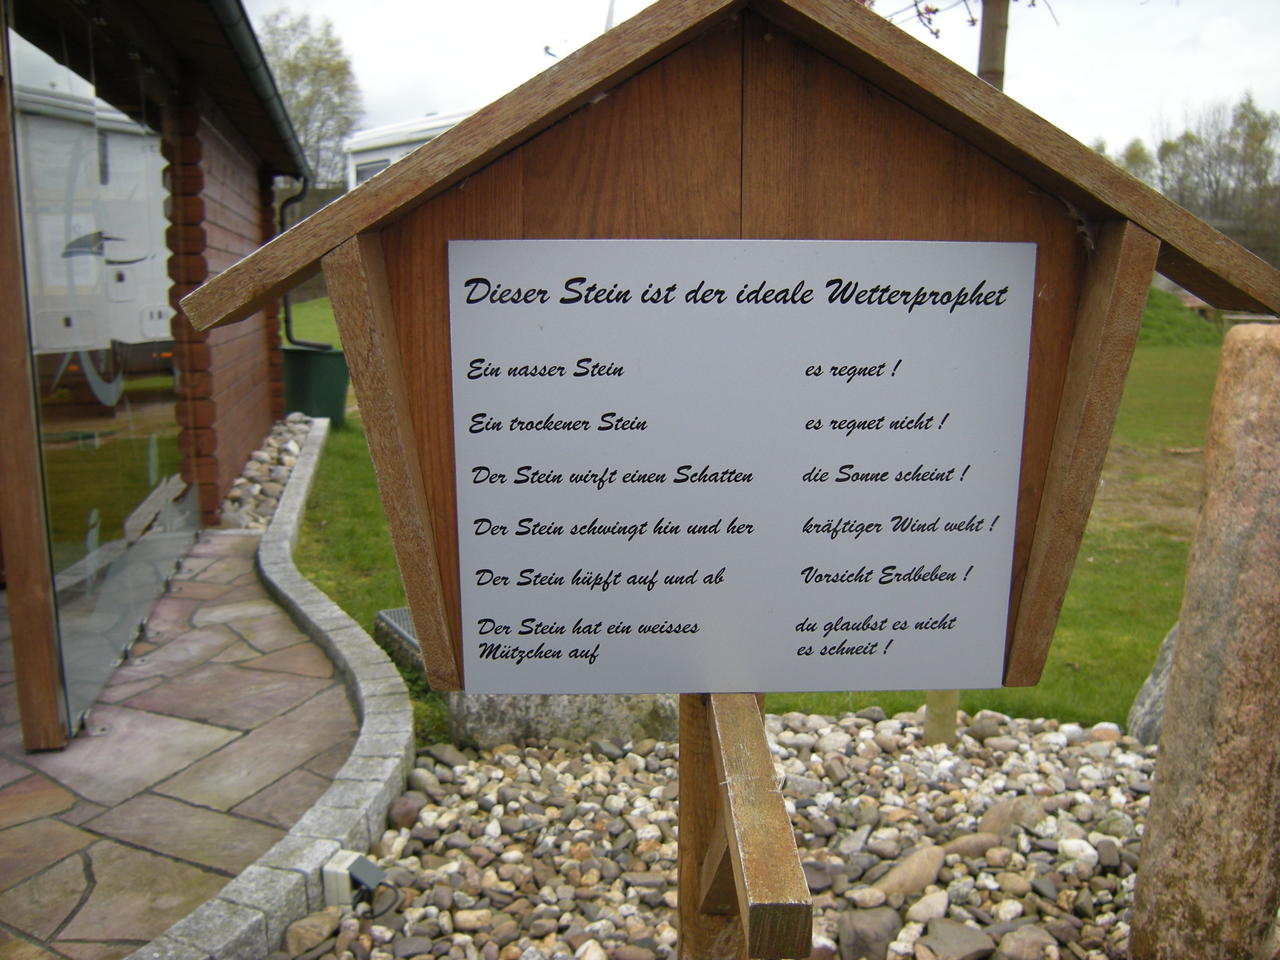 Dieser Stein ist der ideale Wetterprophet
Ein nasser Stein es regnet !
Ein trockener Stein es regnet nicht !
Der Stein wirft einen Schatten die Sonne scheint !
Der Stein schwingt hin und her kräftiger Wind weht !
Der Stein hüpft auf und ab Vorsicht Erdbeben !
Der Stein hat ein weisses du glaubst es nicht
Mützchen auf es schneit !